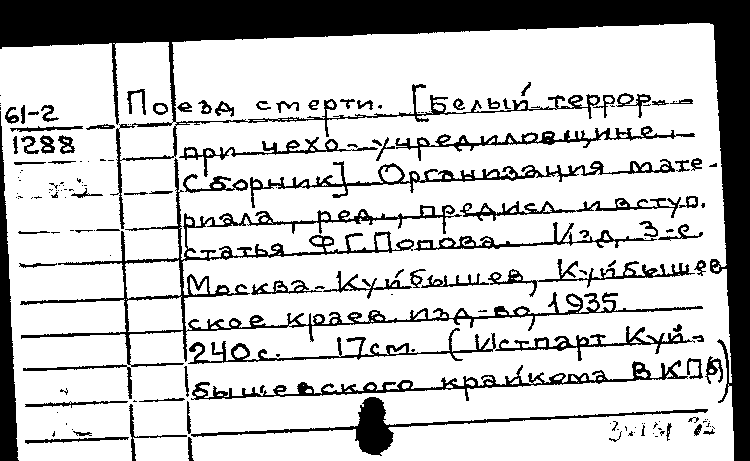 61-2 Поезд смерти. [Белый террор
1288 при чехо-учредиловщине.
Сборник]. Организация мате-
риала, ред., предисл. и вступ.
статья Ф.Г.Попова. Изд. 3-е.
Москва-Куйбышев, Куйбышев
ское краев. изд-во, 1935.
240с. 17см. (Истпарт Куй-
бышевского крайкома ВКП(б)